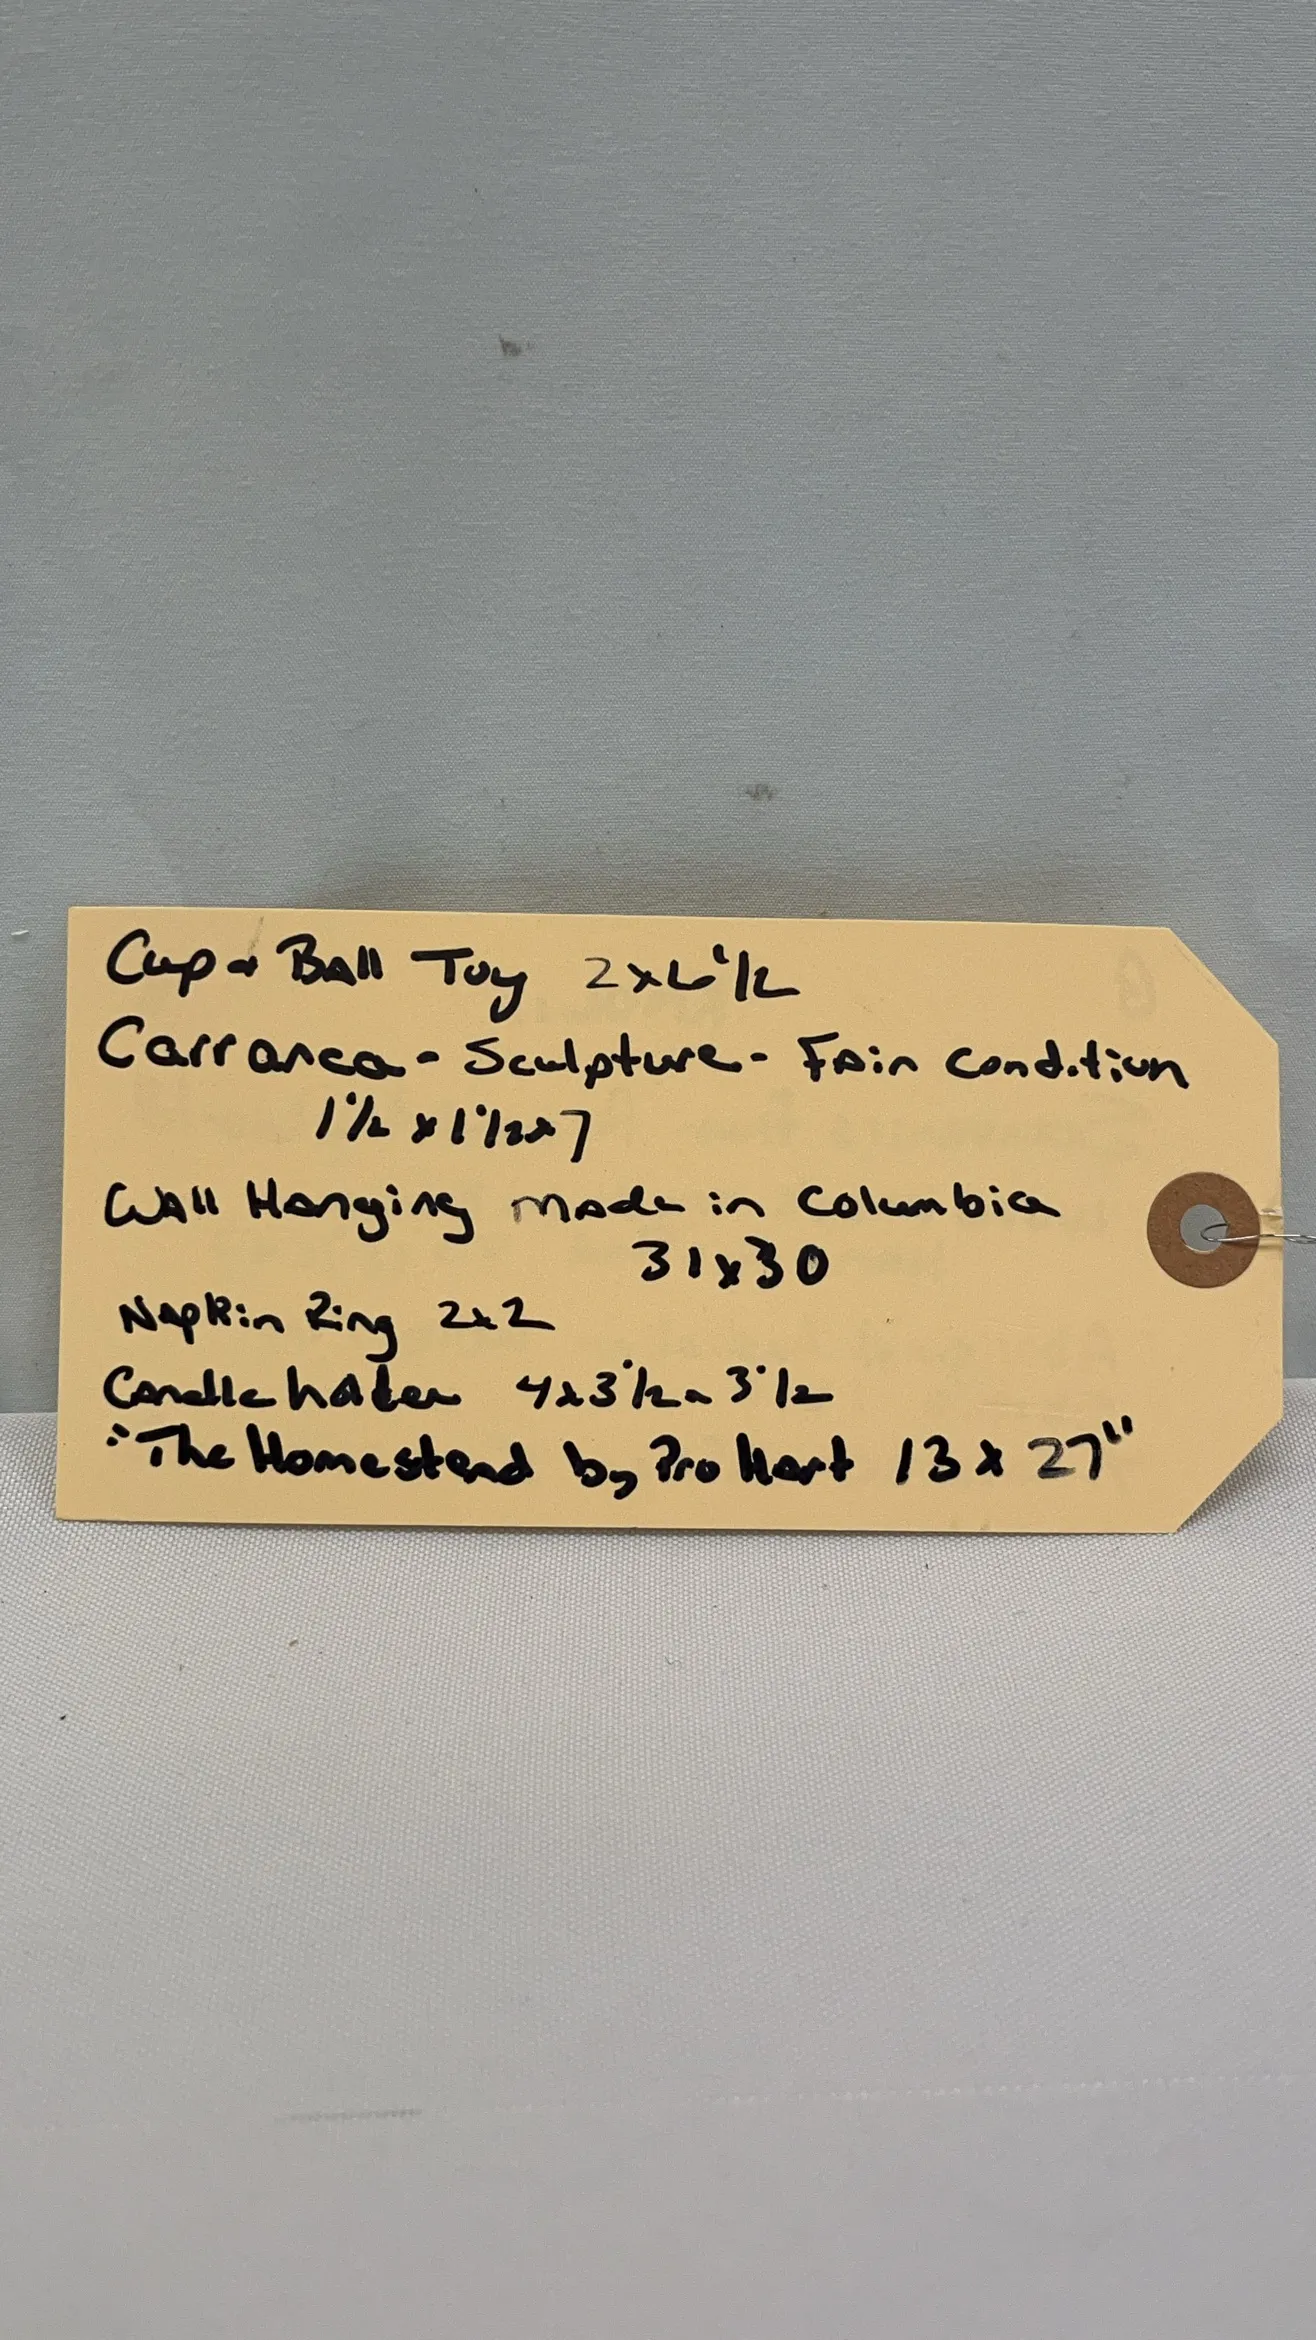 Cup & Ball Toy 2x6 1/2
Carranca - Sculpture - Fair condition
1 1/2 x 1 1/2 x 7
Wall Hanging made in Columbia
31x30
Napkin Ring 2x2
Candle holder 4x3 1/2 x 3 1/2
"The Homestead by Pro Hart 13 x 27"